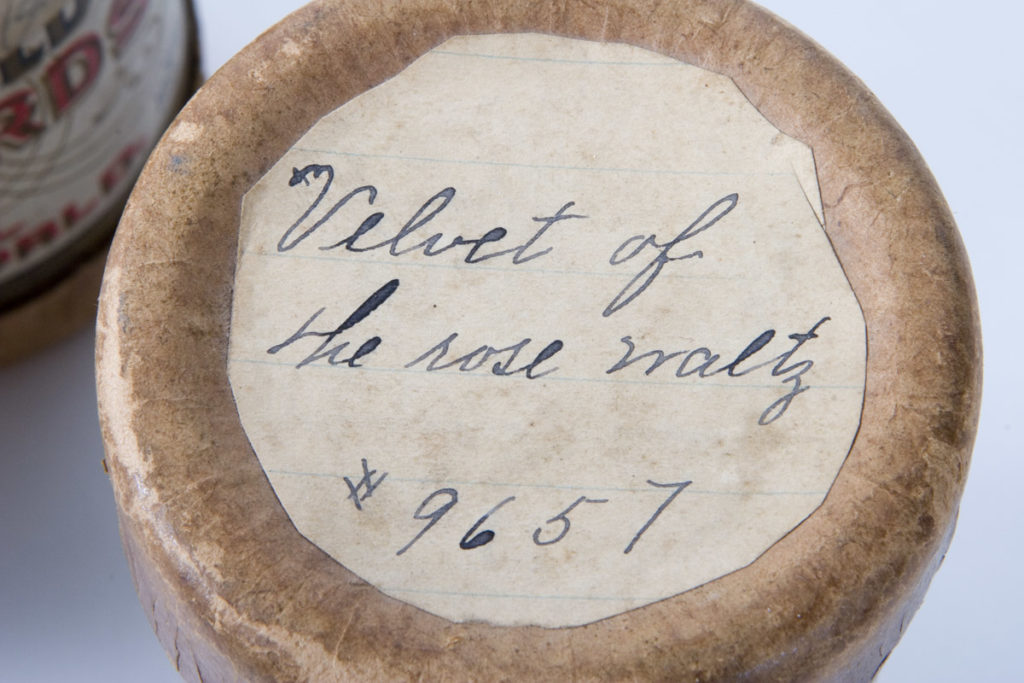 Velvet of
the rose waltz
# 9657